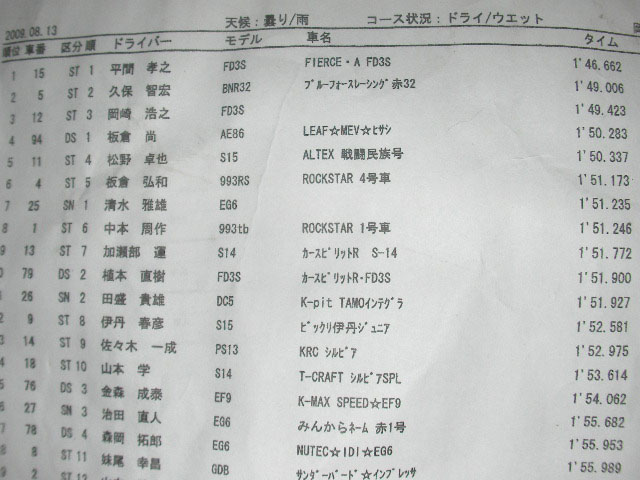 2009.08.13 天候：曇り/雨 コース状況：ドライ/ウエット
順位 車番 区分 順 ドライバー モデル 車名 タイム
1 15 ST 1 平間 孝之 FD3S FIERCE・A FD3S 1'46.662
2 5 ST 2 久保 智宏 BNR32 ﾌﾞﾙｰﾌｫｰｽﾚｰｼﾝｸﾞ 赤32 1'49.006
3 12 ST 3 岡崎 浩之 FD3S 1'49.423
4 94 DS 1 板倉 尚 AE86 LEAF☆MEV☆ﾋｻｼ 1'50.283
5 11 ST 4 松野 卓也 S15 ALTEX 戦闘民族号 1'50.337
6 4 ST 5 板倉 弘和 993RS ROCKSTAR 4号車 1'51.173
7 25 SN 1 清水 雅雄 EG6 1'51.235
8 1 ST 6 中本 周作 993tb ROCKSTAR 1号車 1'51.246
9 13 ST 7 加瀬部 運 S14 ｶｰｽﾋﾟﾘｯﾄR S-14 1'51.772
0 79 DS 2 植本 直樹 FD3S ｶｰｽﾋﾟﾘｯﾄR・FD3S 1'51.900
26 SN 2 田盛 貴雄 DC5 K-pit TAMOｲﾝﾃｸﾞﾗ 1'51.927
2 9 ST 8 伊丹 春彦 S15 ﾋﾞｯｸﾘ伊丹ｼﾞｭﾆｱ 1'52.581
3 14 ST 9 佐々木 一成 PS13 KRC ｼﾙﾋﾞｱ 1'52.975
4 18 ST 10 山本 学 S14 T-CRAFT ｼﾙﾋﾞｱSPL 1'53.614
5 76 DS 3 金森 成泰 EF9 K-MAX SPEED☆EF9 1'54.062
6 27 SN 3 治田 直人 EG6 みんからﾈｰﾑ 赤1号 1'55.682
7 78 DS 4 森岡 拓郎 EG6 NUTEC☆IDI☆EG6 1'55.953
8 8 ST 11 妹尾 幸昌 GDB ｻﾝﾀﾞｰﾊﾞｰﾄﾞ☆ｲﾝﾌﾟﾚｯｻ 1'55.989
9 2 ST 12